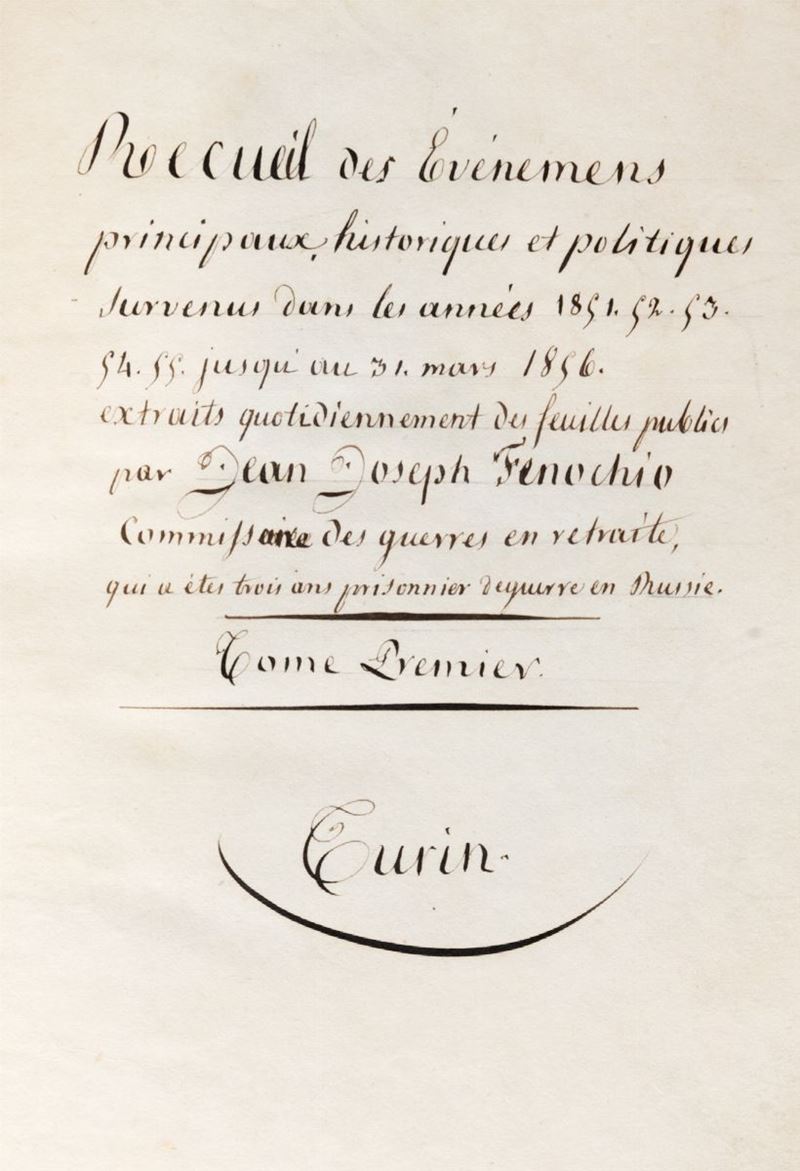 Recueil des Événemens
principaux, historiques et politiques
survenus dans les années 1851. 52. 53.
54. 55. jusqu'au 31. mars 1856.
extraits quotidiennement des feuilles publics
par Jean Joseph Fenochio
Commissaire des guerres en retraite,
qui a étes trois ans prisonnier de guerre en Russie.
Tome Premier.
Turin.